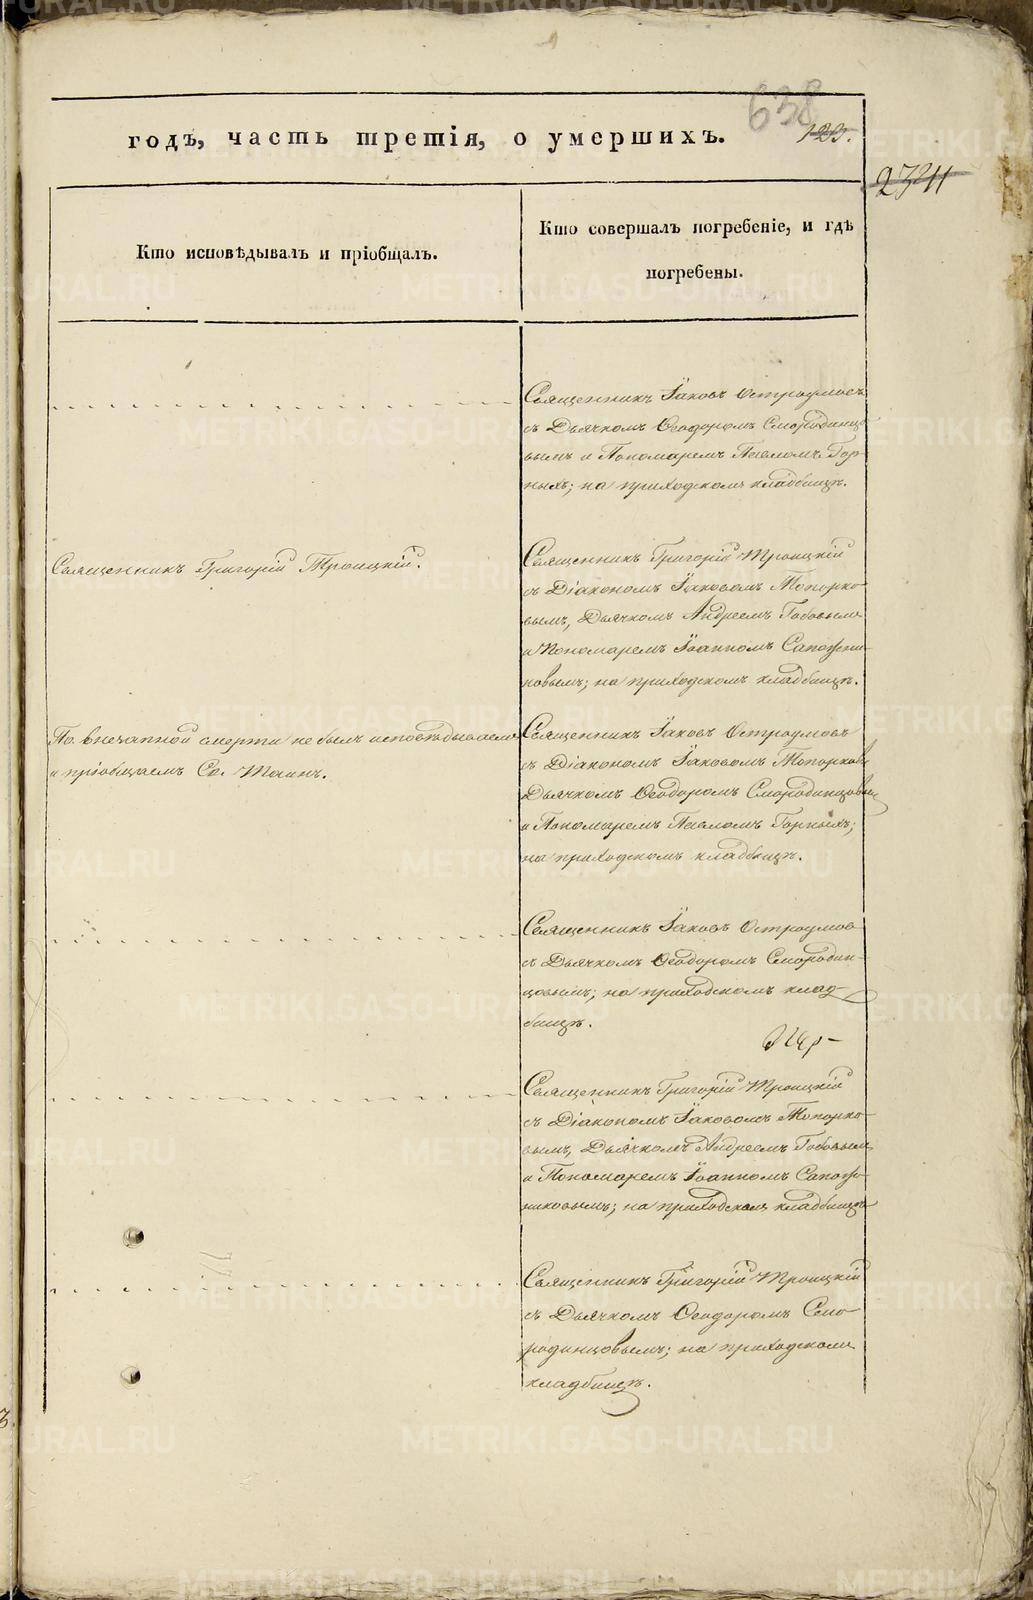 638
годъ, часть третія, о умершихъ.
123.
2311
Кто исповѣдывалъ и пріобщалъ.
Кто совершалъ погребеніе, и гдѣ
погребены.
Священникъ Іаковъ Остроумовъ
съ Дьячкомъ Ѳеодоромъ Смородинцо-
вымъ и Пономаремъ Павломъ Гор-
ныхъ; на приходскомъ кладбищѣ.
Священникъ Григорій Троицкій.
Священникъ Григорій Троицкій
съ Діакономъ Іаковомъ Топорко-
вымъ, Дьячкомъ Андреемъ
и Пономаремъ Іоанномъ Сапожни-
ковымъ; на приходскомъ кладбищѣ.
По внезапной смерти не былъ исповѣдываемъ
и пріобщаемъ Св. Таинъ.
Священникъ Іаковъ Остроумовъ
съ Діакономъ Іаковомъ Топорковы
Дьячкомъ Ѳеодоромъ Смородинцовы
и Пономаремъ Павломъ Горныхъ;
на приходскомъ кладбищѣ.
Священникъ Іаковъ Остроумов
съ Дьячкомъ Ѳеодоромъ Смородин-
цовымъ; на приходскомъ клад-
бищѣ.
Священникъ Григорій Троицкій
съ Діакономъ Іаковомъ Топорко-
вымъ, Дьячкомъ Андреемъ
и Пономаремъ Іоанномъ Сапож-
никовымъ; на приходскомъ кладбищѣ
Священникъ Григорій Троицкій
съ Дьячкомъ Ѳеодоромъ Смо-
родинцовымъ; на приходском
кладбищѣ.
METRIKI.GASO-URAL.RU